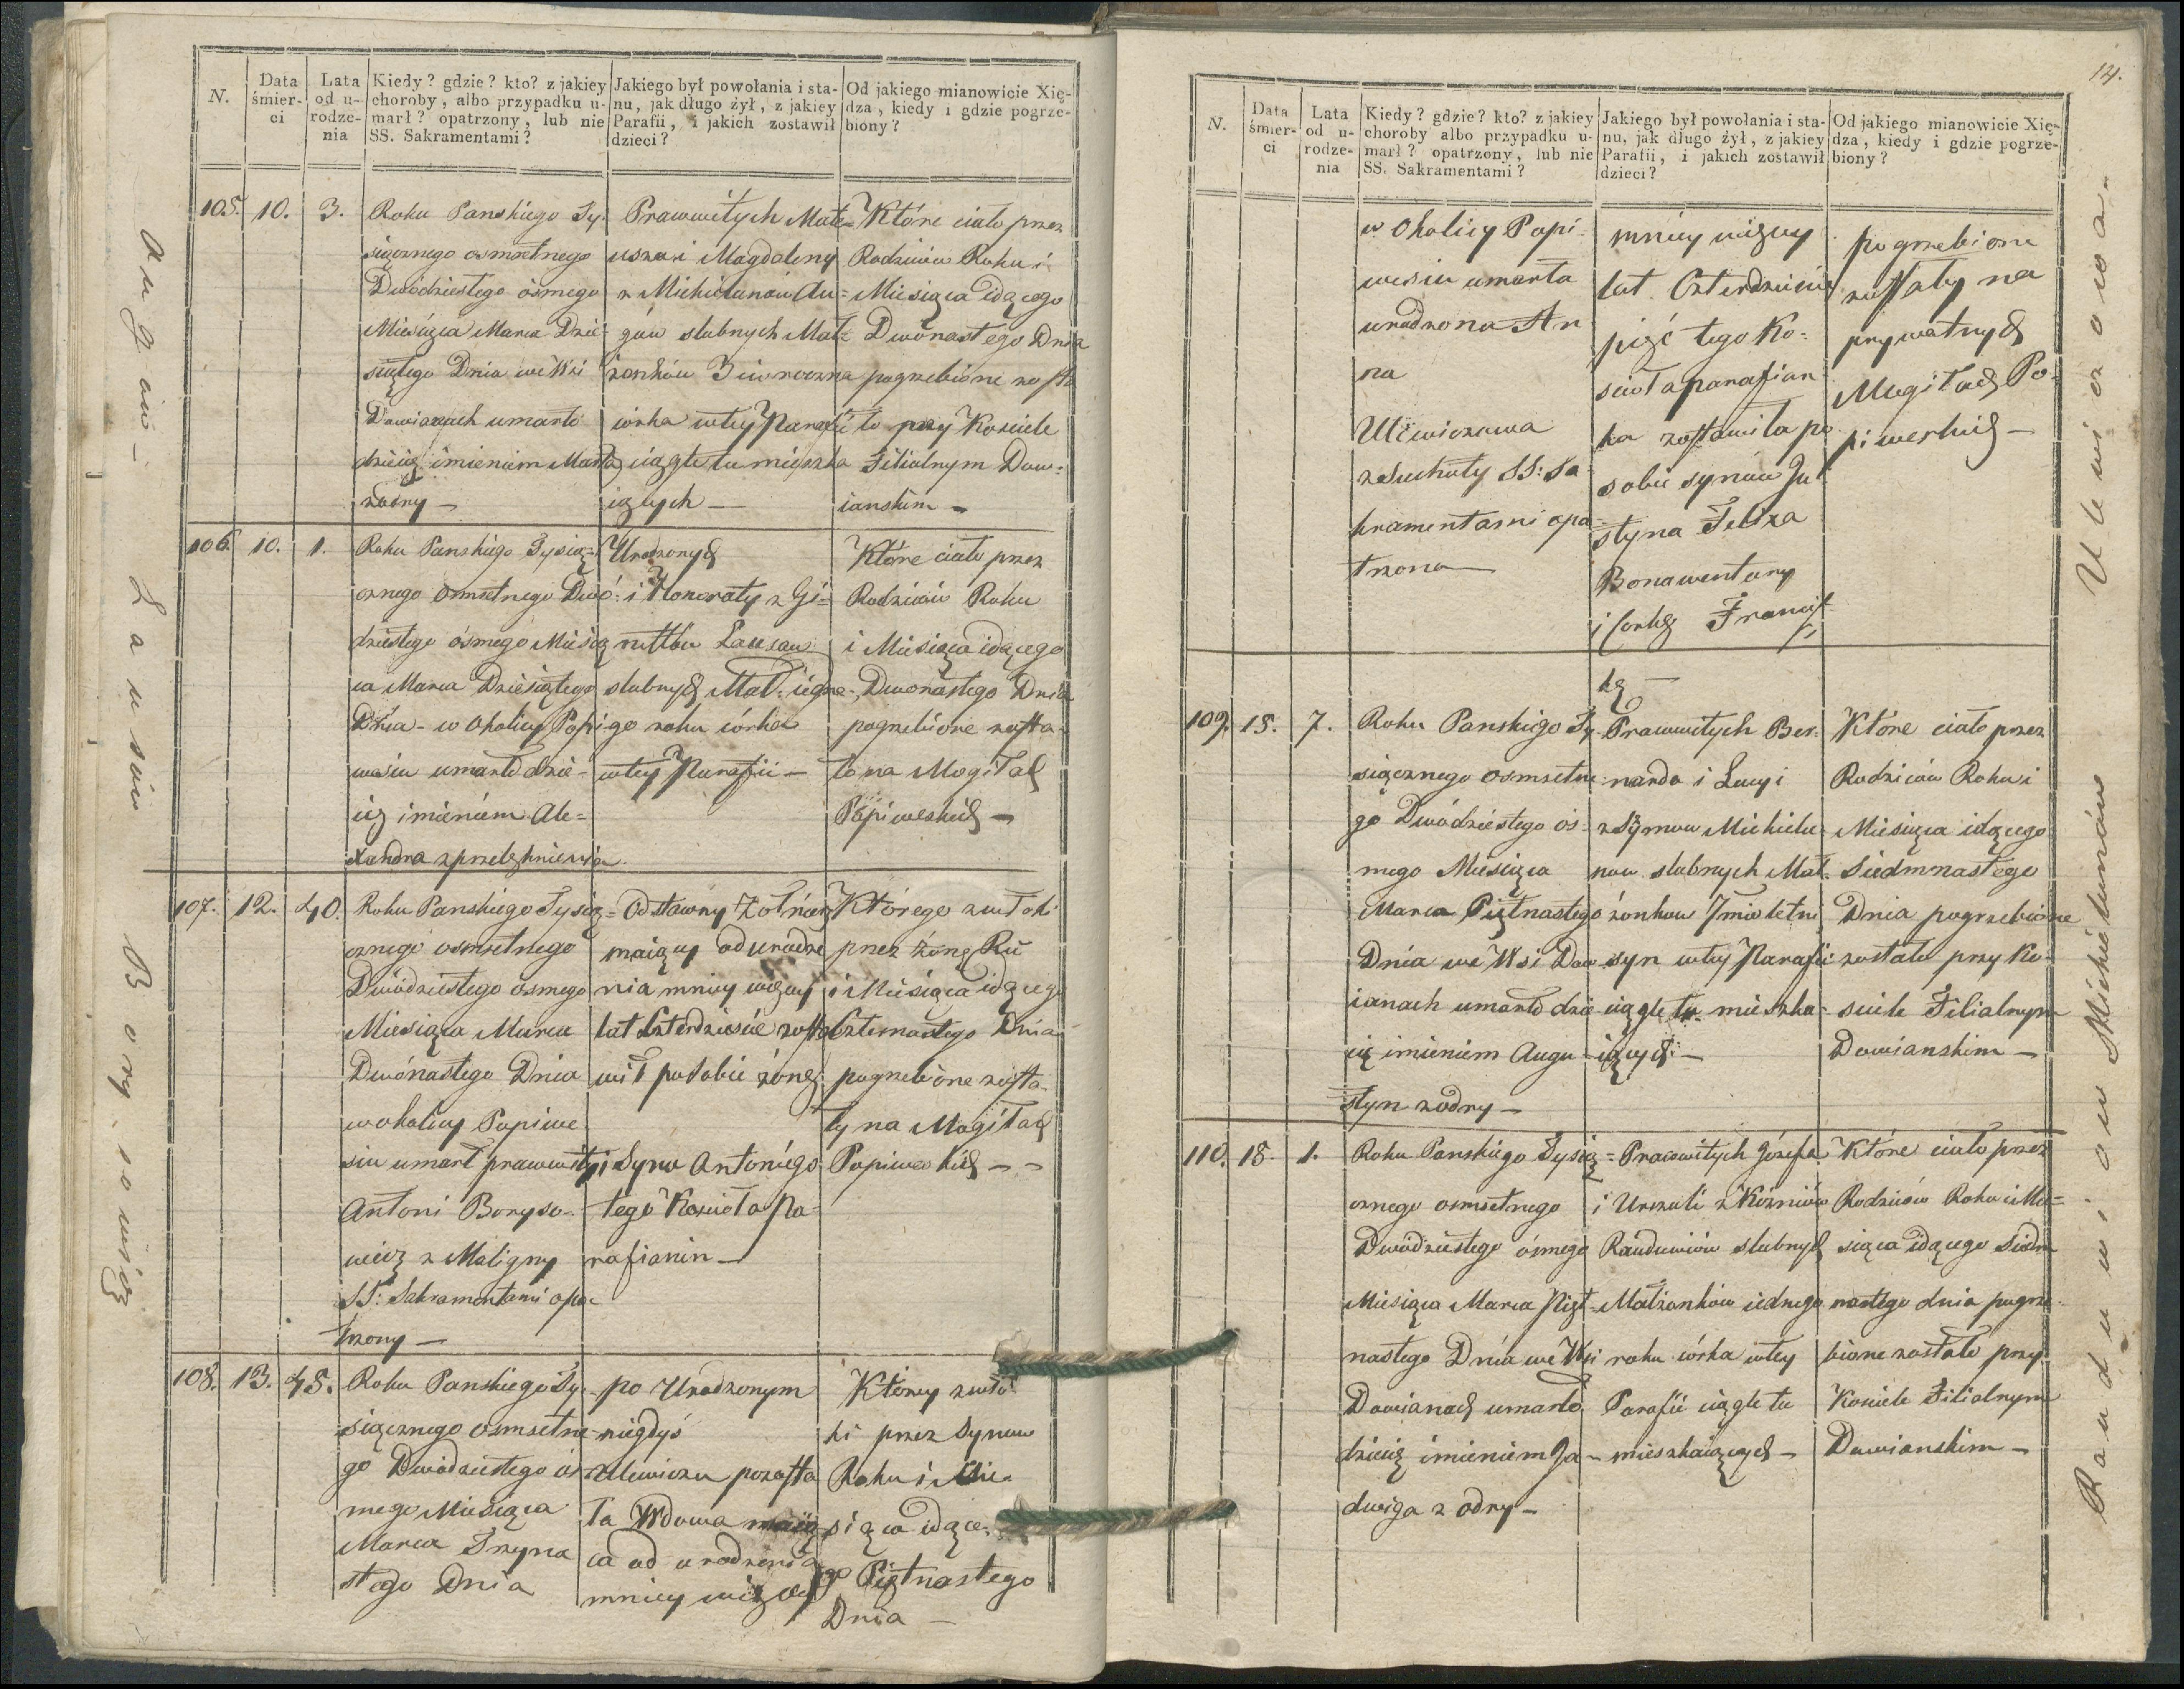 N.
Data śmier-
ci
Lata od u-
rodze-
nia
Kiedy? gdzie? kto? z jakiey
choroby, albo przypadku u-
marł? opatrzony, lub nie
SS. Sakramentami?
Jakiego był powołania i sta-
nu, jak długo żył, z jakiey
Parafii, i jakich zostawił
dzieci?
Od jakiego mianowicie Xię-
dza, kiedy i gdzie pogrze-
biony?
105. 10. 3.
Roku Panskiego Ty-
siącznego osmsetnego
Dwódziestego ósmego
Miesiąca Marca Dzie-
siątego Dnia we Wsi
Dowianach umarło
dziecię imieniem Marta
z odry —
Prawowitych Mate-
usza i Magdaleny
z Michielunów Au-
gów slubnych Mał-
żonków 3 letnia roczna
córka w tey Parafii
ciągle tu mieszka
iących —
Które ciało przez
Rodziców Roku i
Miesiąca idącego
Dwónastego Dnia
pogrzebione zosta
ło przy Kosciele
Filialnym Dow-
ianskim —
106. 10. 1.
Roku Panskiego Tysią-
cznego Osmsetnego Dwó-
dziestego ósmego Miesią
ca Marca Dziesiątego
Dnia - w Okolicy Popi-
wesiu umarło dzie-
cię imieniem Ale-
xandra z przelęknienia
Urodzonych
i Honoraty z Gi-
nttów Lausow
slubnych Mał. iedne-
go roku córka
w tey Parafii —
Które ciało przez
Rodziców Roku
i Miesiąca idącego
Dwónastego Dnia
pogrzebione zosta-
ło na Mogiłach
Popiweskich —
107. 12. 40.
Roku Panskiego Tysią-
cznego osmsetnego
Dwódziestego osmego
Miesiąca Marca
Dwónastego Dnia
w okolicy Popiwe
siu umarł prawowity
Antoni Boryso-
wicz z Maligny
SS: Sakramentami opa-
trzony —
Odstawny Żołnierz
maiący od urodze
nia mniey więcey
lat Czterdzieście zosta
wił po sobie żonę
i Syna Antoniego
tego Kosciołа Pa-
rafianin —
Którego zwłoki
przez żonę Ru
i Miesiąca idącego
Czternastego Dnia
pogrzebione zosta-
ły na Mogiłach
Popiweskich —
108. 13. 45.
Roku Panskiego Ty-
siącznego Osmsetne
go Dwódziestego ós
mego Miesiąca
Marca Trzyna
stego Dnia
po Urodzonym
niegdyś
Ulewiczu pozosta
ła Wdowa maią
ca od urodzenia
mniey więcey
Którey zwło
ki przez Synow
Roku i Mie-
siąca idące-
go Piętnastego
Dnia —
Augów — Lausów Borysowicz
14.
N.
Data śmier-
ci
Lata od u-
rodze-
nia
Kiedy? gdzie? kto? z jakiey
choroby albo przypadku u-
marł? opatrzony, lub nie
SS. Sakramentami?
Jakiego był powołania i sta-
nu, jak długo żył, z jakiey
Parafii, i jakich zostawił
dzieci?
Od jakiego mianowicie Xię-
dza, kiedy i gdzie pogrze-
biony?
w Okolicy Popi-
wesiu umarła
urodzona An
na
Ulewiczowa
z Suchoty SS: Sa
kramentami opa-
trzona —
mniey więcey
lat Czterdzieście
pięć tego Ko-
scioła parafian
ka zostawiła po
sobie synów Ju
styna Felixa
Bonawentury
i Corkę Francisz
kę —
pogrzebione
zostały na
prywatnych
Mogiłach Po-
piweskich —
109. 15. 7.
Roku Panskiego Ty-
siącznego Osmsetne
go Dwódziestego ós-
mego Miesiąca
Marca Piętnastego
Dnia we Wsi Dow
ianach umarło dzie
cię imieniem Augu-
styn z odry —
Prawowitych Ber-
narda i Łucyi
z Symow Michielu
now slubnych Mał-
żonkow 7mio letni
syn w tey Parafii
ciągle tu mieszka-
iących —
Które ciało przez
Rodziców Roku i
Miesiąca idącego
Siedmnastego
Dnia pogrzebione
zostało przy Ko-
sciele Filialnym
Dowianskim —
110. 15. 1.
Roku Panskiego Tysią-
cznego osmsetnego
Dwódziestego ósmego
Miesiąca Marca Pięt-
nastego Dnia we Wsi
Dowianach umarło
dziecię imieniem Ja-
dwiga z odry —
Prawowitych Józefa
i Urszuli z Kózniów
Rauduwiów slubnych
Małżonkow iednego
roku córka w tey
Parafii ciągle tu
mieszkaiących —
Które ciało przez
Rodziców Roku i Mie-
siąca idącego Siedm
nastego dnia pogrze-
bione zostało przy
Kosciele Filialnym
Dowianskim —
Rauduwiow Michielunów Ulewiczowa.